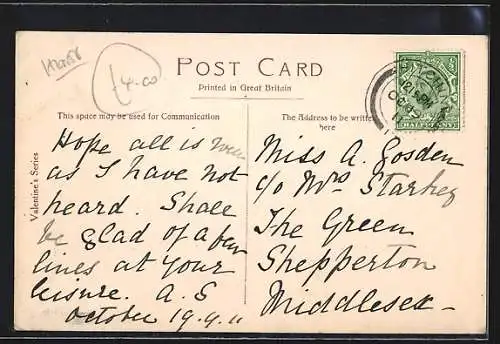 4.00
POST CARD
Printed in Great Britain
This space may be used for Communication
The Address to be written here
Valentine's Series
Hope all is well
as I have not
heard. Shall
be glad of a few
lines at your
leisure. A.S
October 19.9.11
Miss A. Gosden
c/o Mrs Starkey
The Green
Shepperton
Middlesex
HALFPENNY